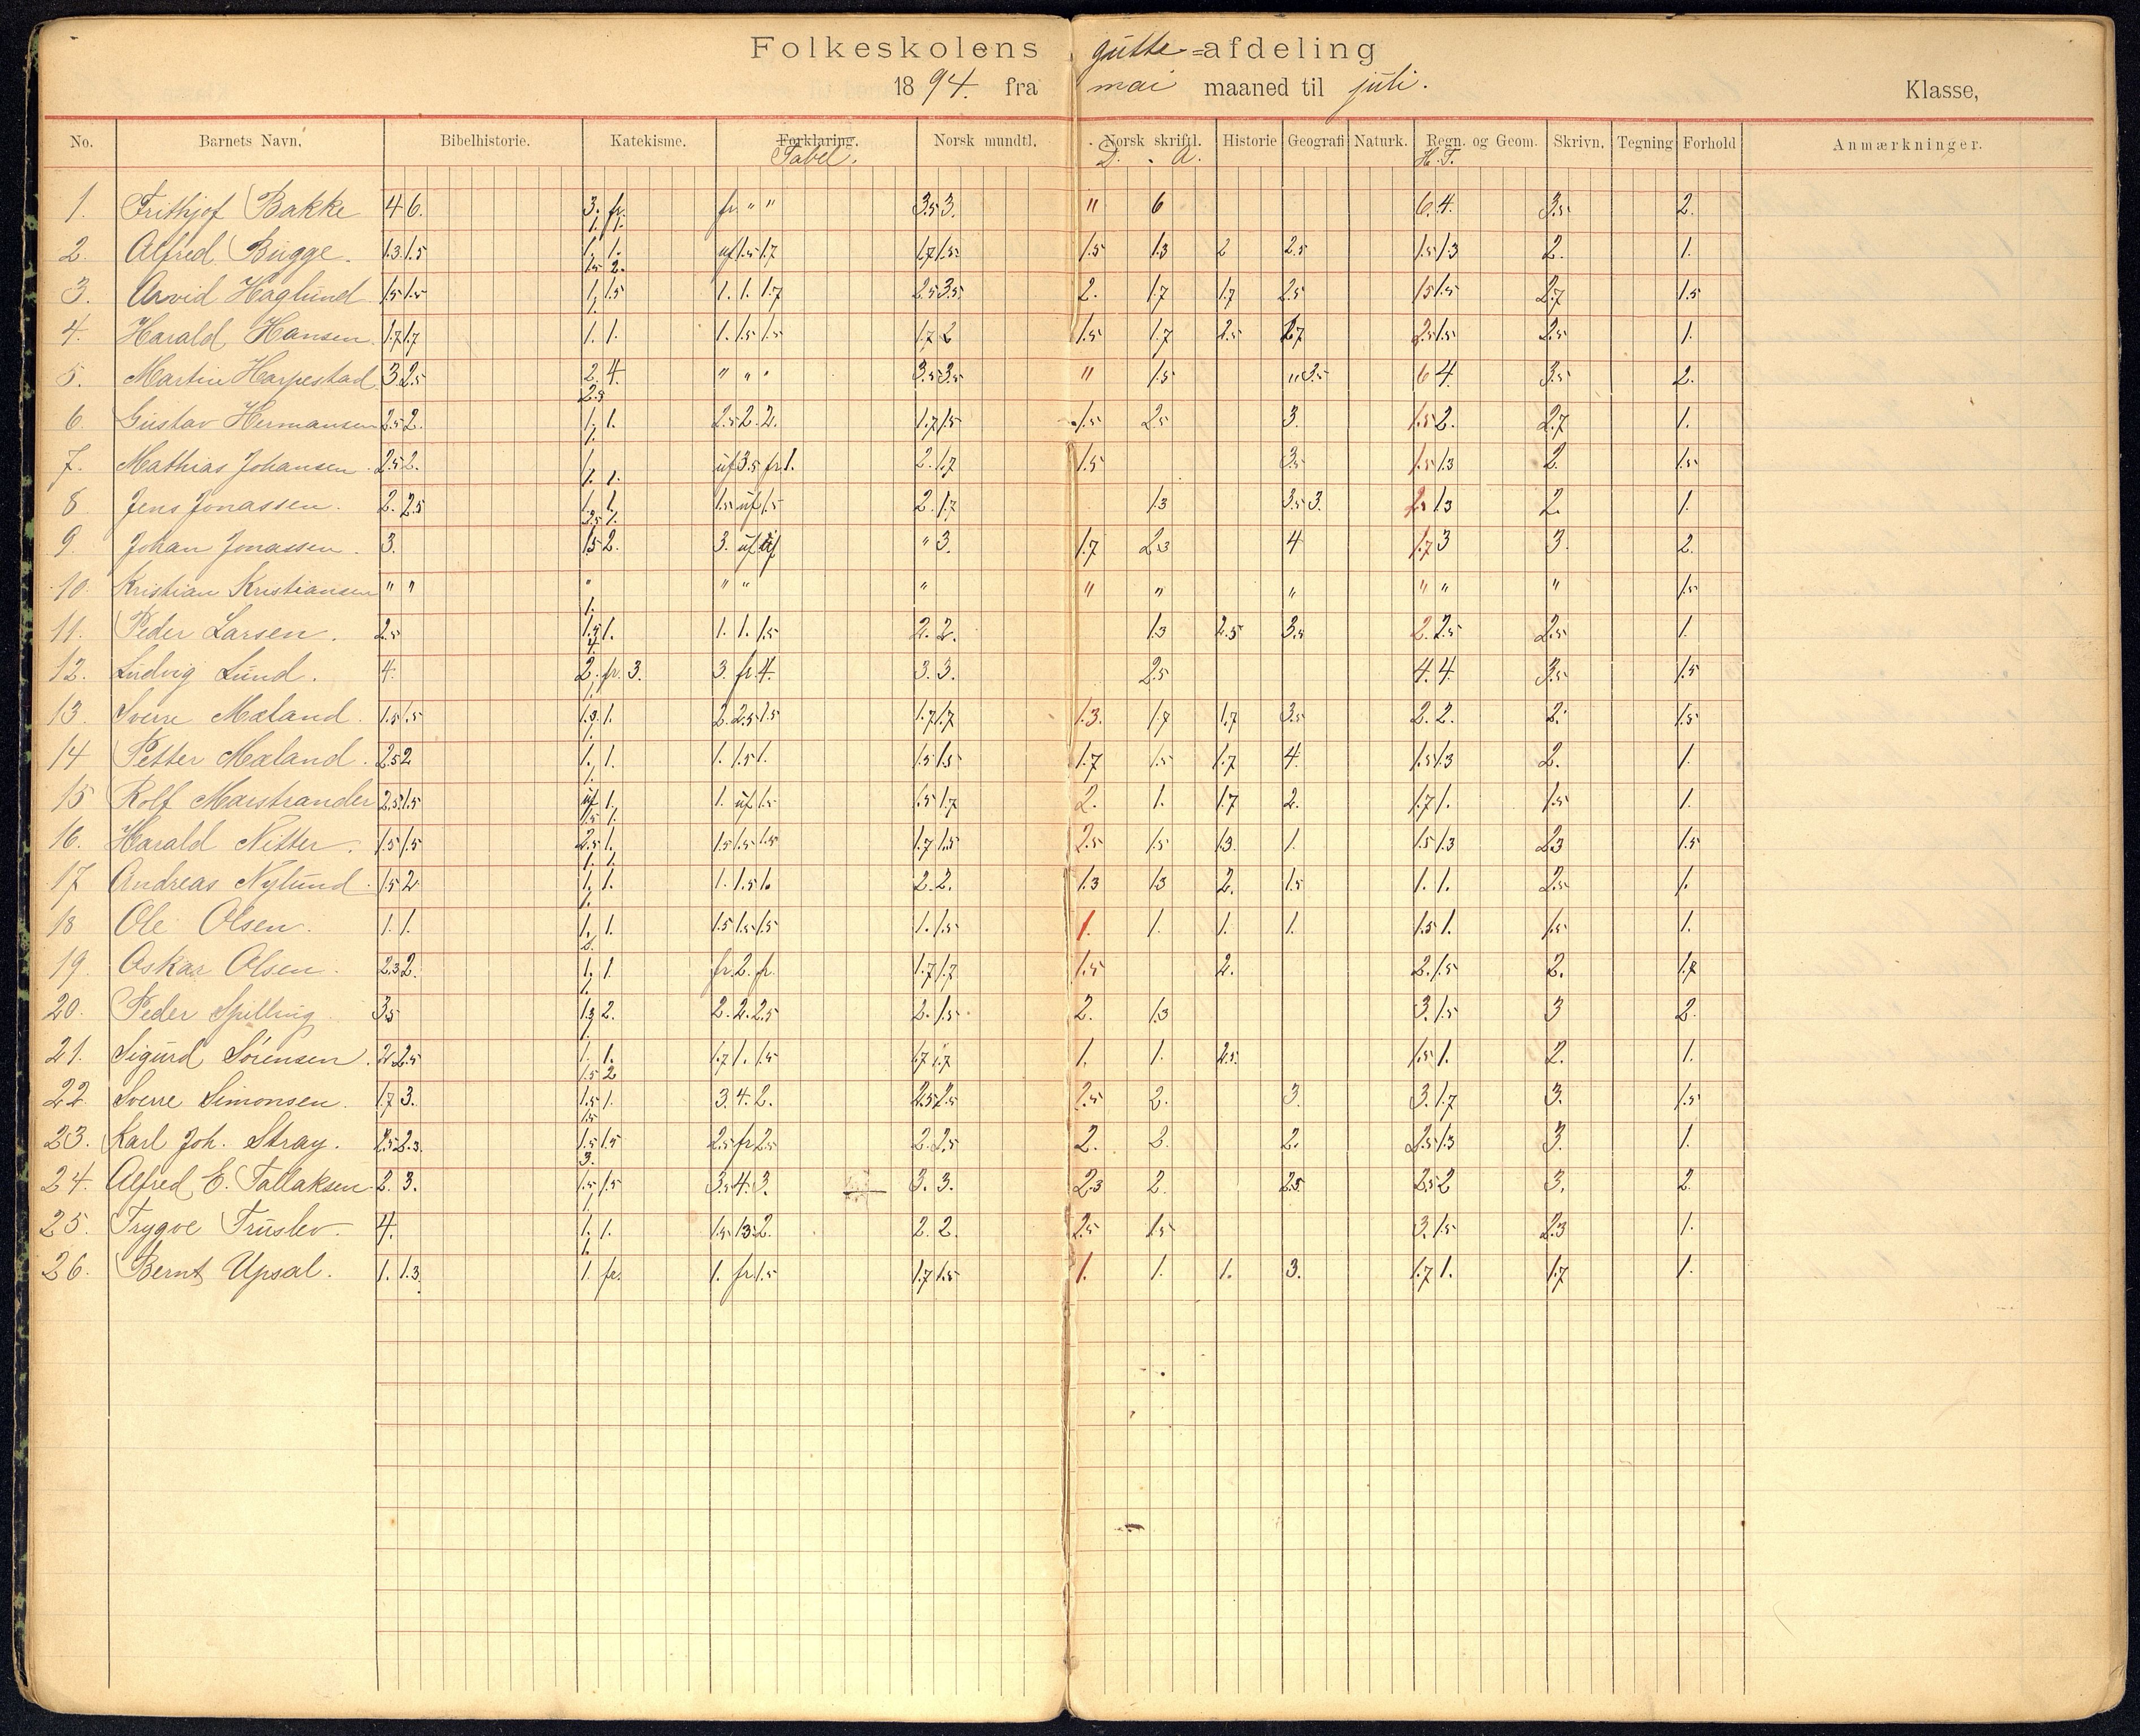 Folkeskolens gutte=afdeling
1894. fra mai maaned til juli. Klasse,
No. Barnets Navn. Bibelhistorie. Katekisme. Forklaring. Norsk mundtl. Norsk skriftl. Historie Geografi Naturk. Regn. og Geom. Skrivn. Tegning Forhold Anmærkninger.
Tabel. D. A. H. T.
1. Frithjof Bakke 4 6. 3. fr. fr. " " 3.5 3. " 6 6. 4. 3.5 2.
1. 1.
2. Alfred Bugge. 1.3 1.5 1. 1. uf 1.5 1.7 1.7 1.5 1.5 1.3 2 2.5 1.5 1.3 2. 1.
1.5 2.
3. Arvid Haglund 1.5 1.5 1. 1.5 1. 1. 1.7 2.5 3.5 2. 1.7 1.7 2.5 1.5 1.5 2.7 1.5
1.
4. Harald Hansen. 1.7 1.7 1. 1. 1. 1.5 1.5 1.7 2 1.5 1.7 2.5 2.7 2.5 1.5 2.5 1.
5. Martin Harpestad 3. 2.5 2. 4. " " " 3.5 3.5 " 1.5 " 3.5 6 4. 3.5 2.
2.5
6. Gustav Hermansen 2.5 2. 1. 1. 2.5 2. 2. 1.7 1.5 1.5 2.5 3. 1.5 2. 2.7 1.
1.
7. Mathias Johansen. 2.5 2. 1. uf 3.5 fr. 1. 2. 1.7 1.5 3.5 1.5 1.3 2. 1.5
1. 1.
8 Jens Jonassen. 2. 2.5 1. 1. 1.5 uf 1.5 2. 1.7 1.3 3.5 3. 2.5 1.3 2. 1.
3.5 1.
9. Johan Jonassen. 3. 1.5 2. 3. uf uf " 3. 1.7 2.3 4 1.7 3 3. 2.
10. Kristian Kristiansen " " " " " " " " " " " " 1.5
1.
11. Peder Larsen. 2.5 1.5 1. 1. 1. 1.5 2. 2. 1.3 2.5 3.5 2. 2.5 2.5 1.
4.
12. Ludvig Lund. 4. 2. fr. 3. 3. fr. 4. 3. 3. 2.5 4. 4. 3.5 1.5
1.
13. Sverre Mæland. 1.5 1.5 1.3 1. 2. 2.5 1.5 1.7 1.7 1.3. 1.7 1.7 3.5 2. 2. 2. 1.5
1.
14 Petter Mæland. 2.5 2 1. 1. 1. 1.5 1. 1.5 1.5 1.7 1.5 1.7 4. 1.5 1.3 2. 1.
1.
15 Rolf Marstrander 2.5 1.5 uf 1. 1. uf. 1.5 1.5 1.7 2. 1. 1.7 2. 1.7 1. 1.5 1.
1.5 1.
16. Harald Nitter. 1.5 1.5 2.5 1. 1.5 1.5 1.5 1.7 1.5 2.5 1.5 1.3 1. 1.5 1.3 2.3 1.5
1. 1.
17 Andreas Nylund. 1.5 2 1. 1. 1. 1.5 1. 2. 2. 1.3 1.3 2. 1.5 1. 1. 2.5 1.
1.
18 Ole Olsen. 1. 1. 1. 1. 1.5 1.5 1.5 1. 1.5 1. 1. 1. 1. 1.5 1. 1.5 1.
2.
19. Oskar Olsen. 2.3 2. 1. 1. fr. 2. fr. 1.7 1.7 1.5 2. 2. 1.5 2. 1.7
1.
20. Peder Spilling 3.5 1.3 2. 2. 2. 2.5 2. 1.5. 2. 1.3 3. 1.5 3 2.
1.
21. Sigurd Sørensen. 2. 2.5 1. 1. 1.7 1. 1.5 1.7 1.7 1. 1. 2.5. 1.5 1. 2. 1.
1.5 2
22. Sverre Simonsen. 1.7 3. 1.5 1. 3. 4. 2. 2.5 2.5 2.5 2. 3. 3. 1.7 3. 1.5
1.5
23. Karl Joh. Stray. 2.5 2.3. 1.5 1.5 2.5 fr 2.5 2. 2.5 2. 2. 2. 2.5 1.3 3. 1.
3.
24. Alfred E. Tallaksen 2. 3. 1.5 1.5 3.5 4. 3. 3. 3. 2.3 2. 2.5 2.5 2 3. 2
1.
25. Trygve Truslev. 4. 1. 1. 1.5 1.3 2. 2. 2. 2.5 1.5 3. 1.5 2.3 1.
1.
26. Bernt Upsal. 1. 1.3. 1. fr. 1. fr. 1.5 1.7 1.5 1. 1. 1. 3. 1.7 1. 1.7 1.